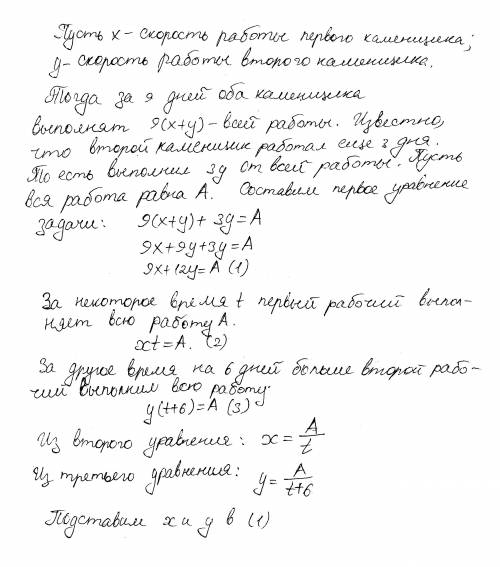 Пусть x – скорость работы первого каменщика;
y – скорость работы второго каменщика.
Тогда за 9 дней оба каменщика
выполнят 9(x+y) – всей работы. Известно,
что второй каменщик работал еще 3 дня.
То есть выполнил 3y от всей работы. Пусть
вся работа равна A. Составим первое уравнение
задачи: 9(x+y)+3y=A
9x+9y+3y=A
9x+12y=A (1)
За некоторое время t первый рабочий выпол-
няет всю работу A.
xt=A. (2)
За другое время на 6 дней больше второй рабо-
чий выполнил всю работу.
y(t+6)=A (3)
Из второго уравнения: x=A/t
Из третьего уравнения: y=A/(t+6)
Подставим x и y в (1)